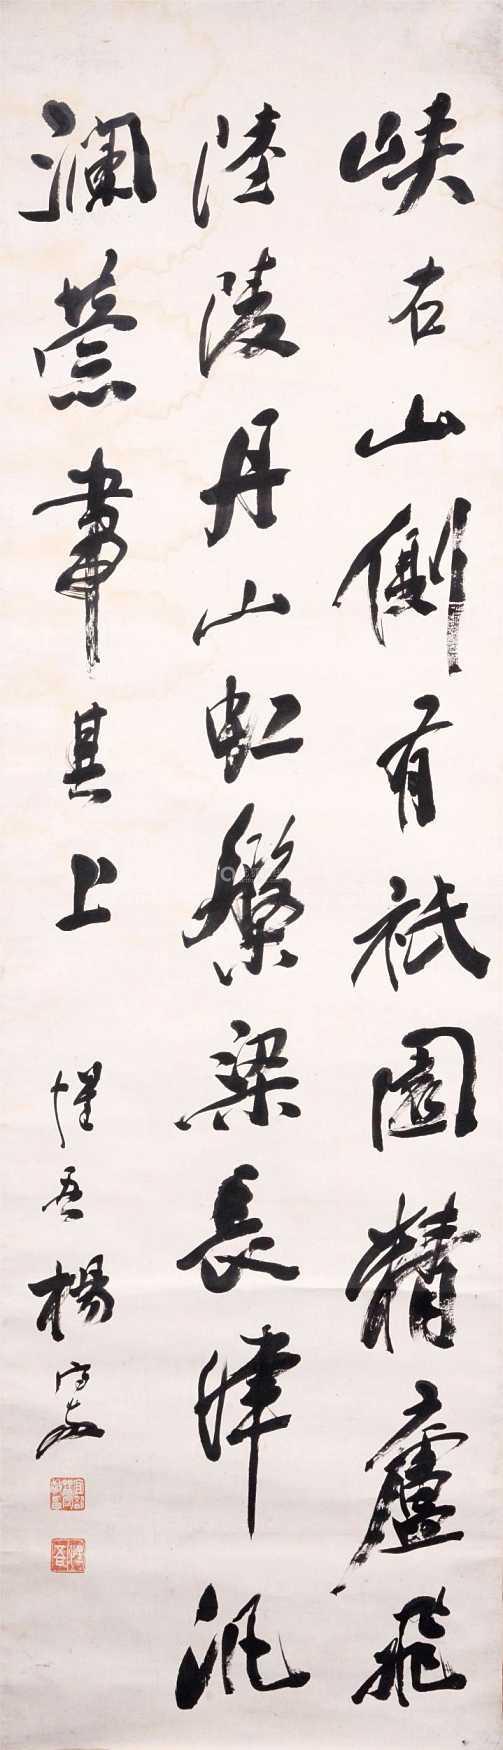 峽右山側有祇園精廬飛
陸陵丹山虹盤梁長津汎
瀾縈帶其上
惺吾楊守敬
惺吾